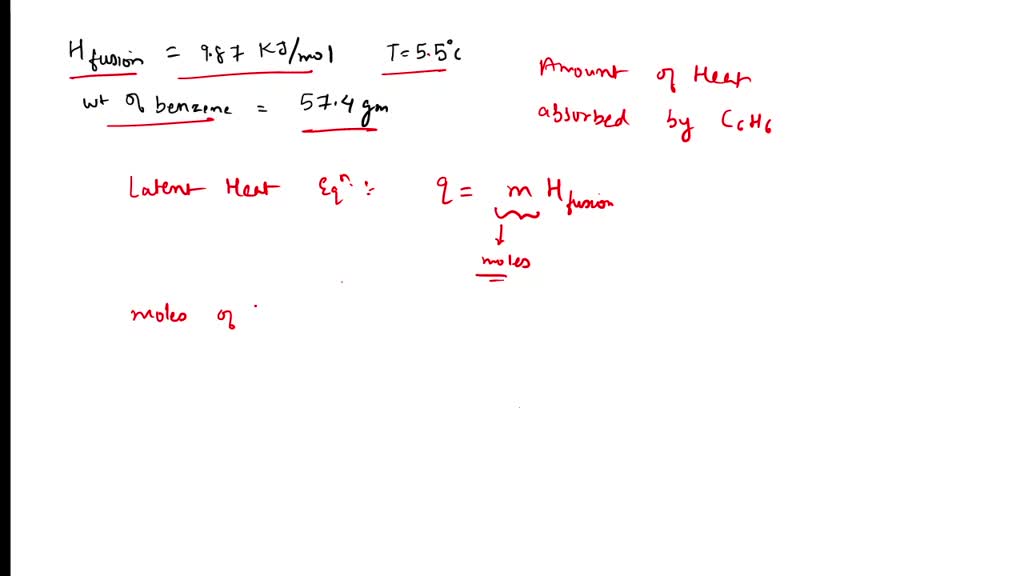 H fusion = 9.87 KJ/mol T = 5.5°c
wt of benzene = 57.4 gm
Amount of Heat
absorbed by C6H6
Latent Heat Eqn :- q = m H fusion
moles
moles of